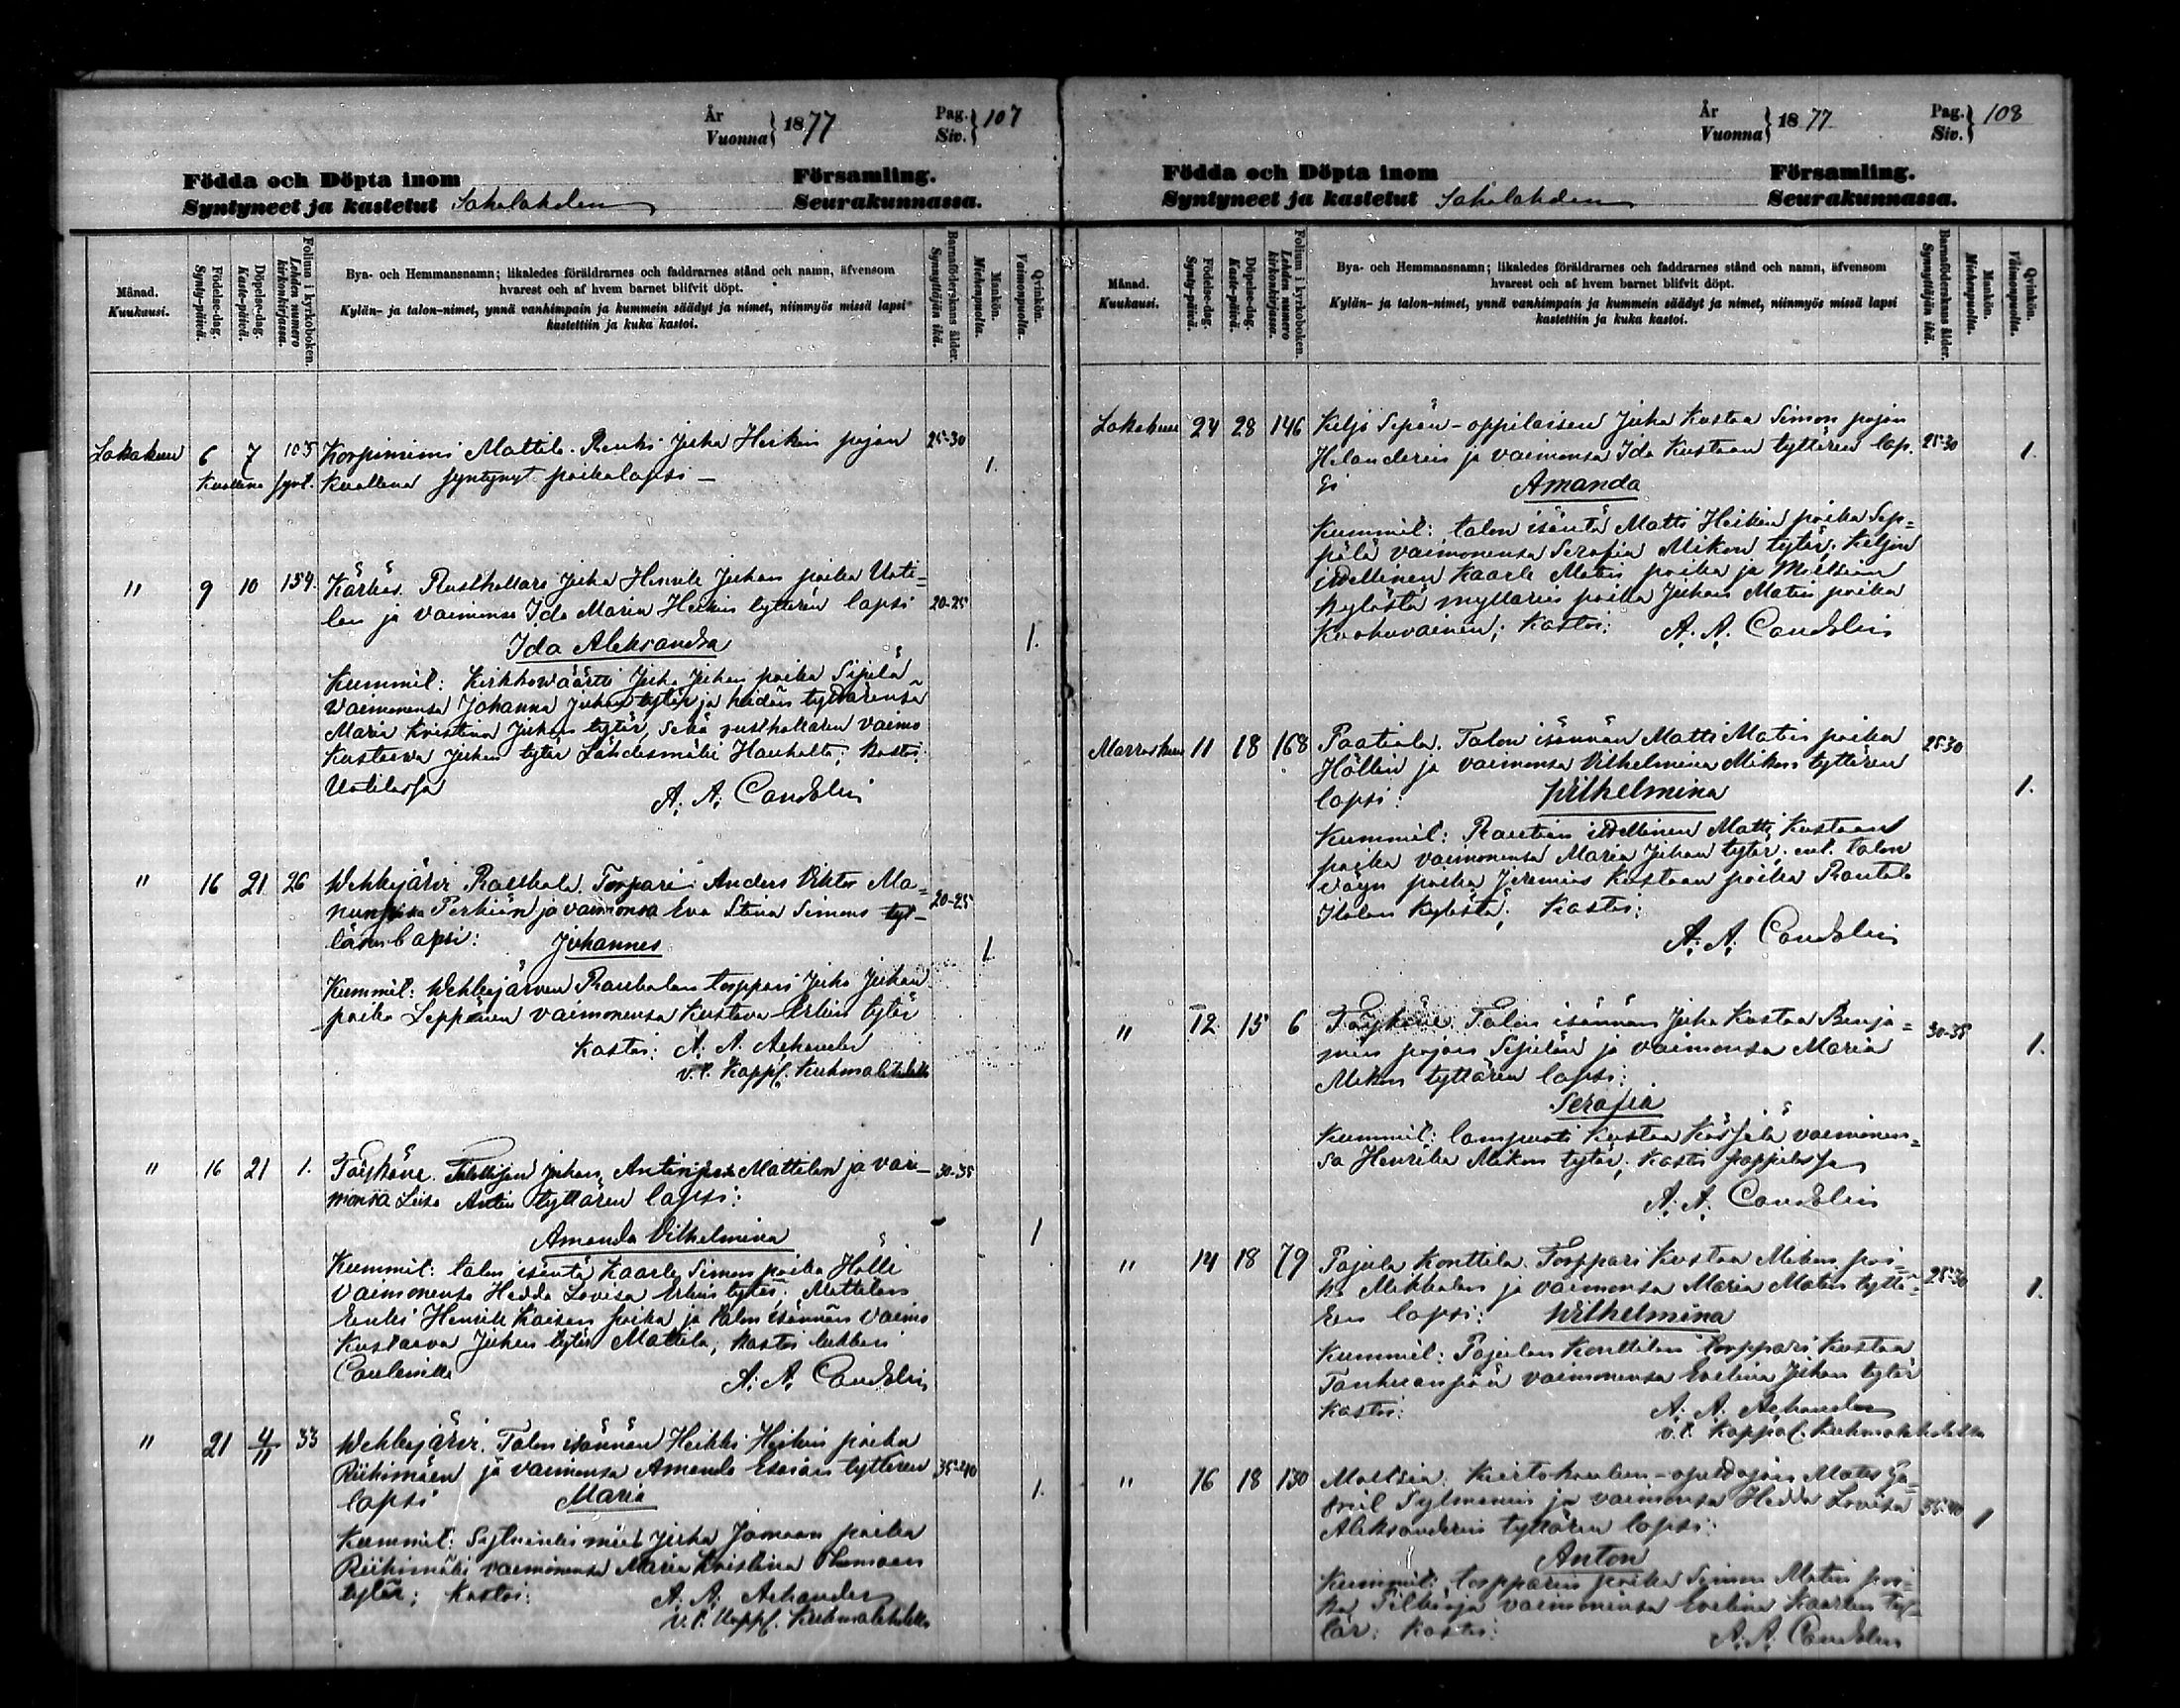 År
Vuonna } 1877
Pag.
Siv. } 107
Födda och Döpta inom Församling.
Syntyneet ja kastetut Sahalahden Seurakunnassa.
Månad.
Kuukausi.
Födelse-dag.
Synty-päivä.
Döpelse-dag.
Kaste-päivä.
Folium i kyrkoboken.
Lehden numero
kirkonkirjassa.
Bya- och Hemmansnamn; likaledes föräldrarnes och faddrarnes stånd och namn, äfvensom
hvarest och af hvem barnet blifvit döpt.
Kylän- ja talon-nimet, ynnä vanhimpain ja kummein säädyt ja nimet, niinmyös missä lapsi
kastettiin ja kuka kastoi.
Barnaföderskans ålder.
Synnyttäjän ikä.
Mankön.
Miehenpuolta.
Qvinkön.
Vaimonpuolta.
Lokakuu 6 7 105 Korpiniemi Mattila. Renki Juha Heikin pojan 25-30
Kuollena synt. Kuollena syntynyt poikalapsi – 1.
" 9 10 154. Kärkäs. Rusthollari Juha Henrik Juhan poika Uoti-
lan ja vaimonsa Ida Maria Heikin tyttären lapsi 20-25
Ida Aleksandra 1.
Kummit: Kirkkowäärti Juha Juhan poika Sipilä
Waimonensa Johanna Juhan tytär ja heidän tyttärensä
Maria Kristina Juhan tytär, Sekä rusthollarin vaimo
Kustaava Juhan tytär Lähdesmäki Hauholta; kastoi:
Uotilassa A. A. Candolin
" 16 21 26 Wehkajärvi Raukola. Torpari Anders Viktor Ma-
nunpoika Perhiön ja vaimonsa Eva Stina Simons tyt- 20-25
lären lapsi: Johannes 1
Kummit: Wehkajärven Raukolan torppari Juho Juhan
poika Leppänen vaimonensa Kustava Erkin tytär
Kastoi: A. A. Achander
v.t. Kappl. Kuhmalahdella
" 16 21 1. Pakkala Juhan Antinpoika Mattilan ja vai- 30-35
monsa Liisa Antin tyttären lapsi:
Amanda Vilhelmina 1
Kummit: talon isäntä Kaarle Simon poika Hölli
Vaimonensa Hedda Lovisa Erkin tytär; Mattilan
Renki Henrik Kaisan poika ja talon isännän vaimo
Kustaava Juhan tytär Mattila; kastoi lukkari
A. A. Candolin
" 21 4/11 33 Wehkajärvi. Talon isännän Heikki Heikin poika
Riihimäen ja vaimonsa Amanda Esaian tyttären 35-40
lapsi Maria 1.
Kummit: Sytninkimies Juha Jooman poika
Riihimäki vaimonensa Maria Kristina Tuomaan
tytär; Kastoi: A. A. Achander
v.t. Kappl. Kuhmalahdella
År
Vuonna } 1877
Pag.
Siv. } 108
Födda och Döpta inom Församling.
Syntyneet ja kastetut Sahalahden Seurakunnassa.
Månad.
Kuukausi.
Födelse-dag.
Synty-päivä.
Döpelse-dag.
Kaste-päivä.
Folium i kyrkoboken.
Lehden numero
kirkonkirjassa.
Bya- och Hemmansnamn; likaledes föräldrarnes och faddrarnes stånd och namn, äfvensom
hvarest och af hvem barnet blifvit döpt.
Kylän- ja talon-nimet, ynnä vanhimpain ja kummein säädyt ja nimet, niinmyös missä lapsi
kastettiin ja kuka kastoi.
Barnaföderskans ålder.
Synnyttäjän ikä.
Mankön.
Miehenpuolta.
Qvinkön.
Vaimonpuolta.
Lokakuu 24 28 146 Keljo Sepän-oppilaisen Juha Kustaa Simon pojan
Helanderin ja vaimonsa Ida Kustaan tyttären lap- 25-30 1.
si Amanda
Kummit: talon isäntä Matti Heikin poika Sep-
pälä vaimonensa Serafia Mikon tytär; Keljon
itsellinen Kaarle Matin poika ja Moltsian
kylästä myllärin poika Juhan Matin poika
Kastoi: A. A. Candolin
Marraskuu 11 18 168 Paatiala. Talon isännän Matti Matin poika 25-30
Höllin ja vaimonsa Vilhelmina Mikon tyttären
lapsi: Wilhelmina 1.
Kummit: Rautian itsellinen Matti Kustaan
poika vaimonensa Maria Juhan tytär; ent. talon
vävyn poika Jeremias Kustaan poika Rautala
Isolan kylästä; Kastoi:
A. A. Candolin
" 12 15 6 Talon isännän Juha Kustaa Benja- 30-35
min pojan Sipilän ja vaimonsa Maria 1.
Mikon tyttären lapsi:
Serafia
Kummit: lampuoti Kustaa vaimonen-
sa Henrika Mikon tytär; kastoi pappilassa
A. A. Candolin
" 14 18 79 Pajula Konttila. Torppari Kustaa Mikon poi-
ka Mikkolan ja vaimonsa Maria Matin tyttä- 25-30
ren lapsi: Wilhelmina 1.
Kummit: Pajulan Konttilan torppari Kustaa
vaimonensa Evelina Juhan tytär
Kastoi: A. A. Achander
v.t. Kappal. Kuhmalahdella
" 16 18 130 Moltsia. Kiertokoulun-opettajan Matts Ga-
briel Sylmanin ja vaimonsa Hedda Lovisa 35-40
Aleksanderin tyttären lapsi: 1
Anton
Kummit: torpparin poika Simon Matin poi-
ka vaimonensa Evelina Kaarlen tyt-
tär: Kastoi: A. A. Candolin